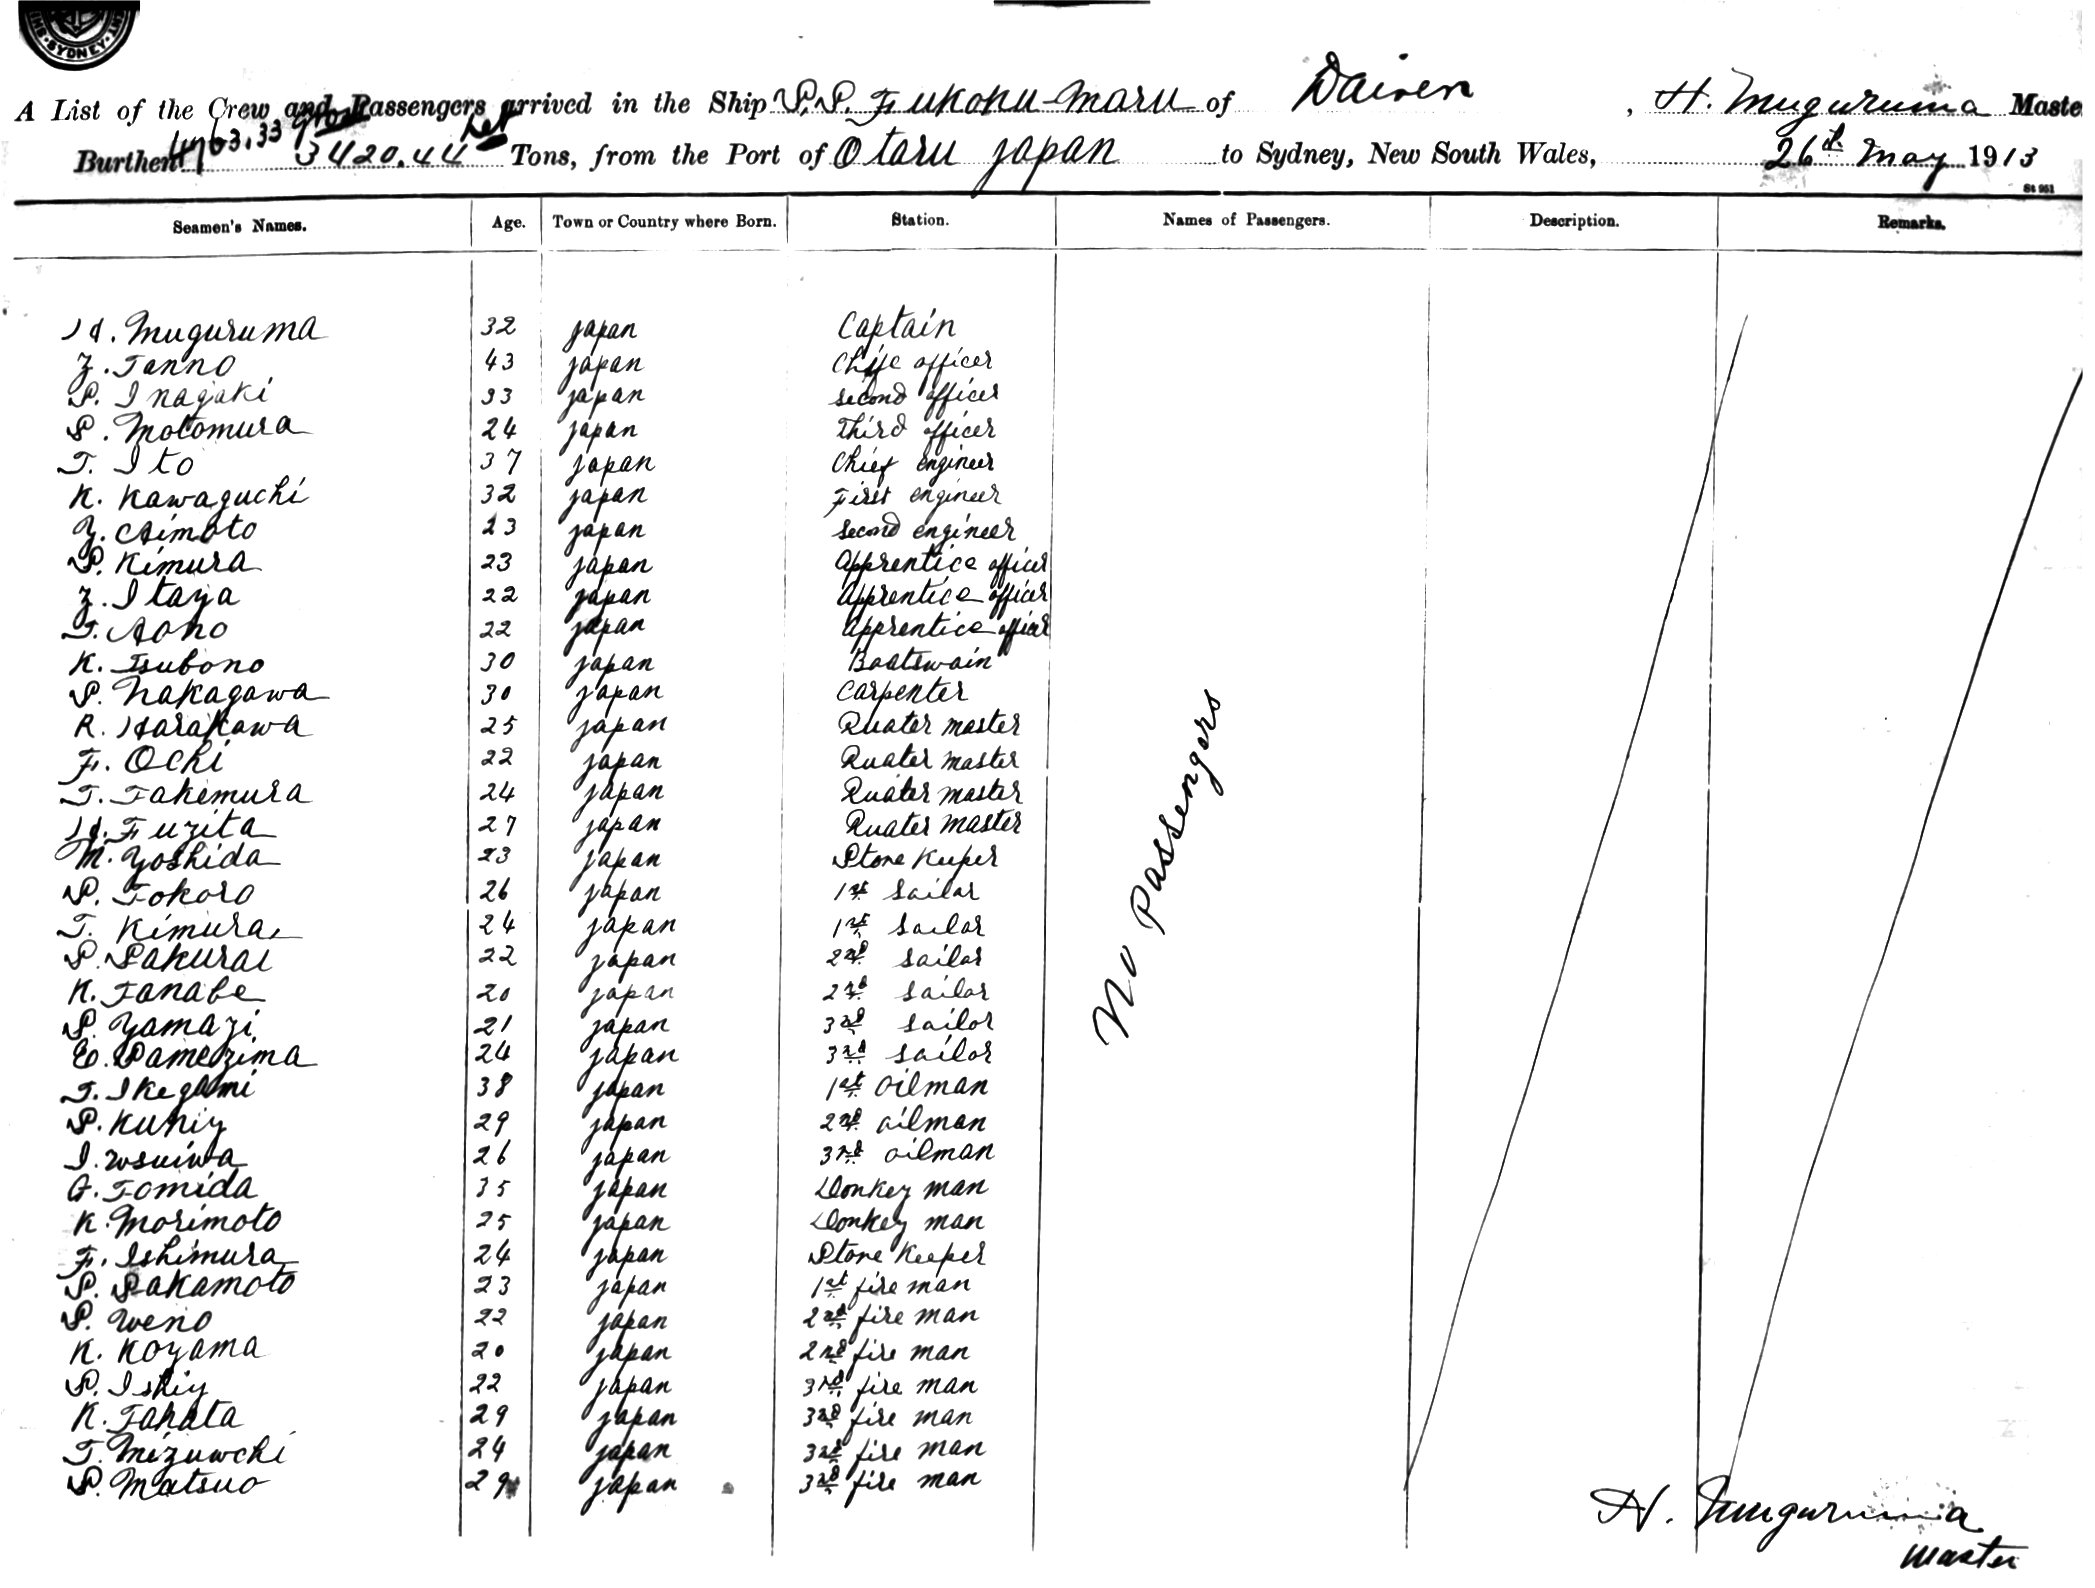 SYDNEY
A List of the Crew and Passengers arrived in the Ship S.S. Fukoku-Maru of Dairen, H. Muguruma Maste
Burthen 4763.33 gross 3420.44 Net Tons, from the Port of Otaru Japan to Sydney, New South Wales, 26th May 1913
St 951
Seamen's Names. Age. Town or Country where Born. Station. Names of Passengers. Description. Remarks.
H. Muguruma 32 Japan Captain
Z. Tanno 43 Japan Chife officer
S. Inagaki 33 Japan second officer
S. Motomura 24 Japan Third officer
T. Ito 37 Japan Chief engineer
K. Kawaguchi 32 Japan First engineer
Y. Aimoto 23 Japan second engineer
S. Kimura 23 Japan Apprentice officer
Z. Itaya 22 Japan Apprentice officer
T. Aono 22 Japan Apprentice officer
K. Tsubono 30 Japan Boatswain
S. Nakagawa 30 Japan Carpenter
R. Harakawa 25 Japan Quater master
F. Ochi 22 Japan Quater master
T. Takemura 24 Japan Quater master
H. Fuzita 27 Japan Quater master
M. Yoshida 23 Japan Store Keeper
S. Tokoro 26 Japan 1st sailor
T. Kimura 24 Japan 1st sailor
S. Sakurai 22 Japan 2nd sailor
K. Tanabe 20 Japan 2nd sailor
S. Yamazi 21 Japan 3rd sailor
E. Samezima 24 Japan 3rd sailor
T. Ikegami 38 Japan 1st oilman
S. Kuniy 29 Japan 2nd oilman
I. 26 Japan 3rd oilman
G. Tomida 35 Japan Donkey man
K. Morimoto 25 Japan Donkey man
F. Ishimura 24 Japan Store Keeper
S. Sakamoto 23 Japan 1st fire man
S. Weno 22 Japan 2nd fire man
K. Koyama 20 Japan 2nd fire man
S. Ishiy 22 Japan 3rd fire man
K. Takata 29 Japan 3rd fire man
T. Mizuwchi 24 Japan 3rd fire man
S. Matsuo 29 Japan 3rd fire man
No Passengers
H. Muguruma
Master